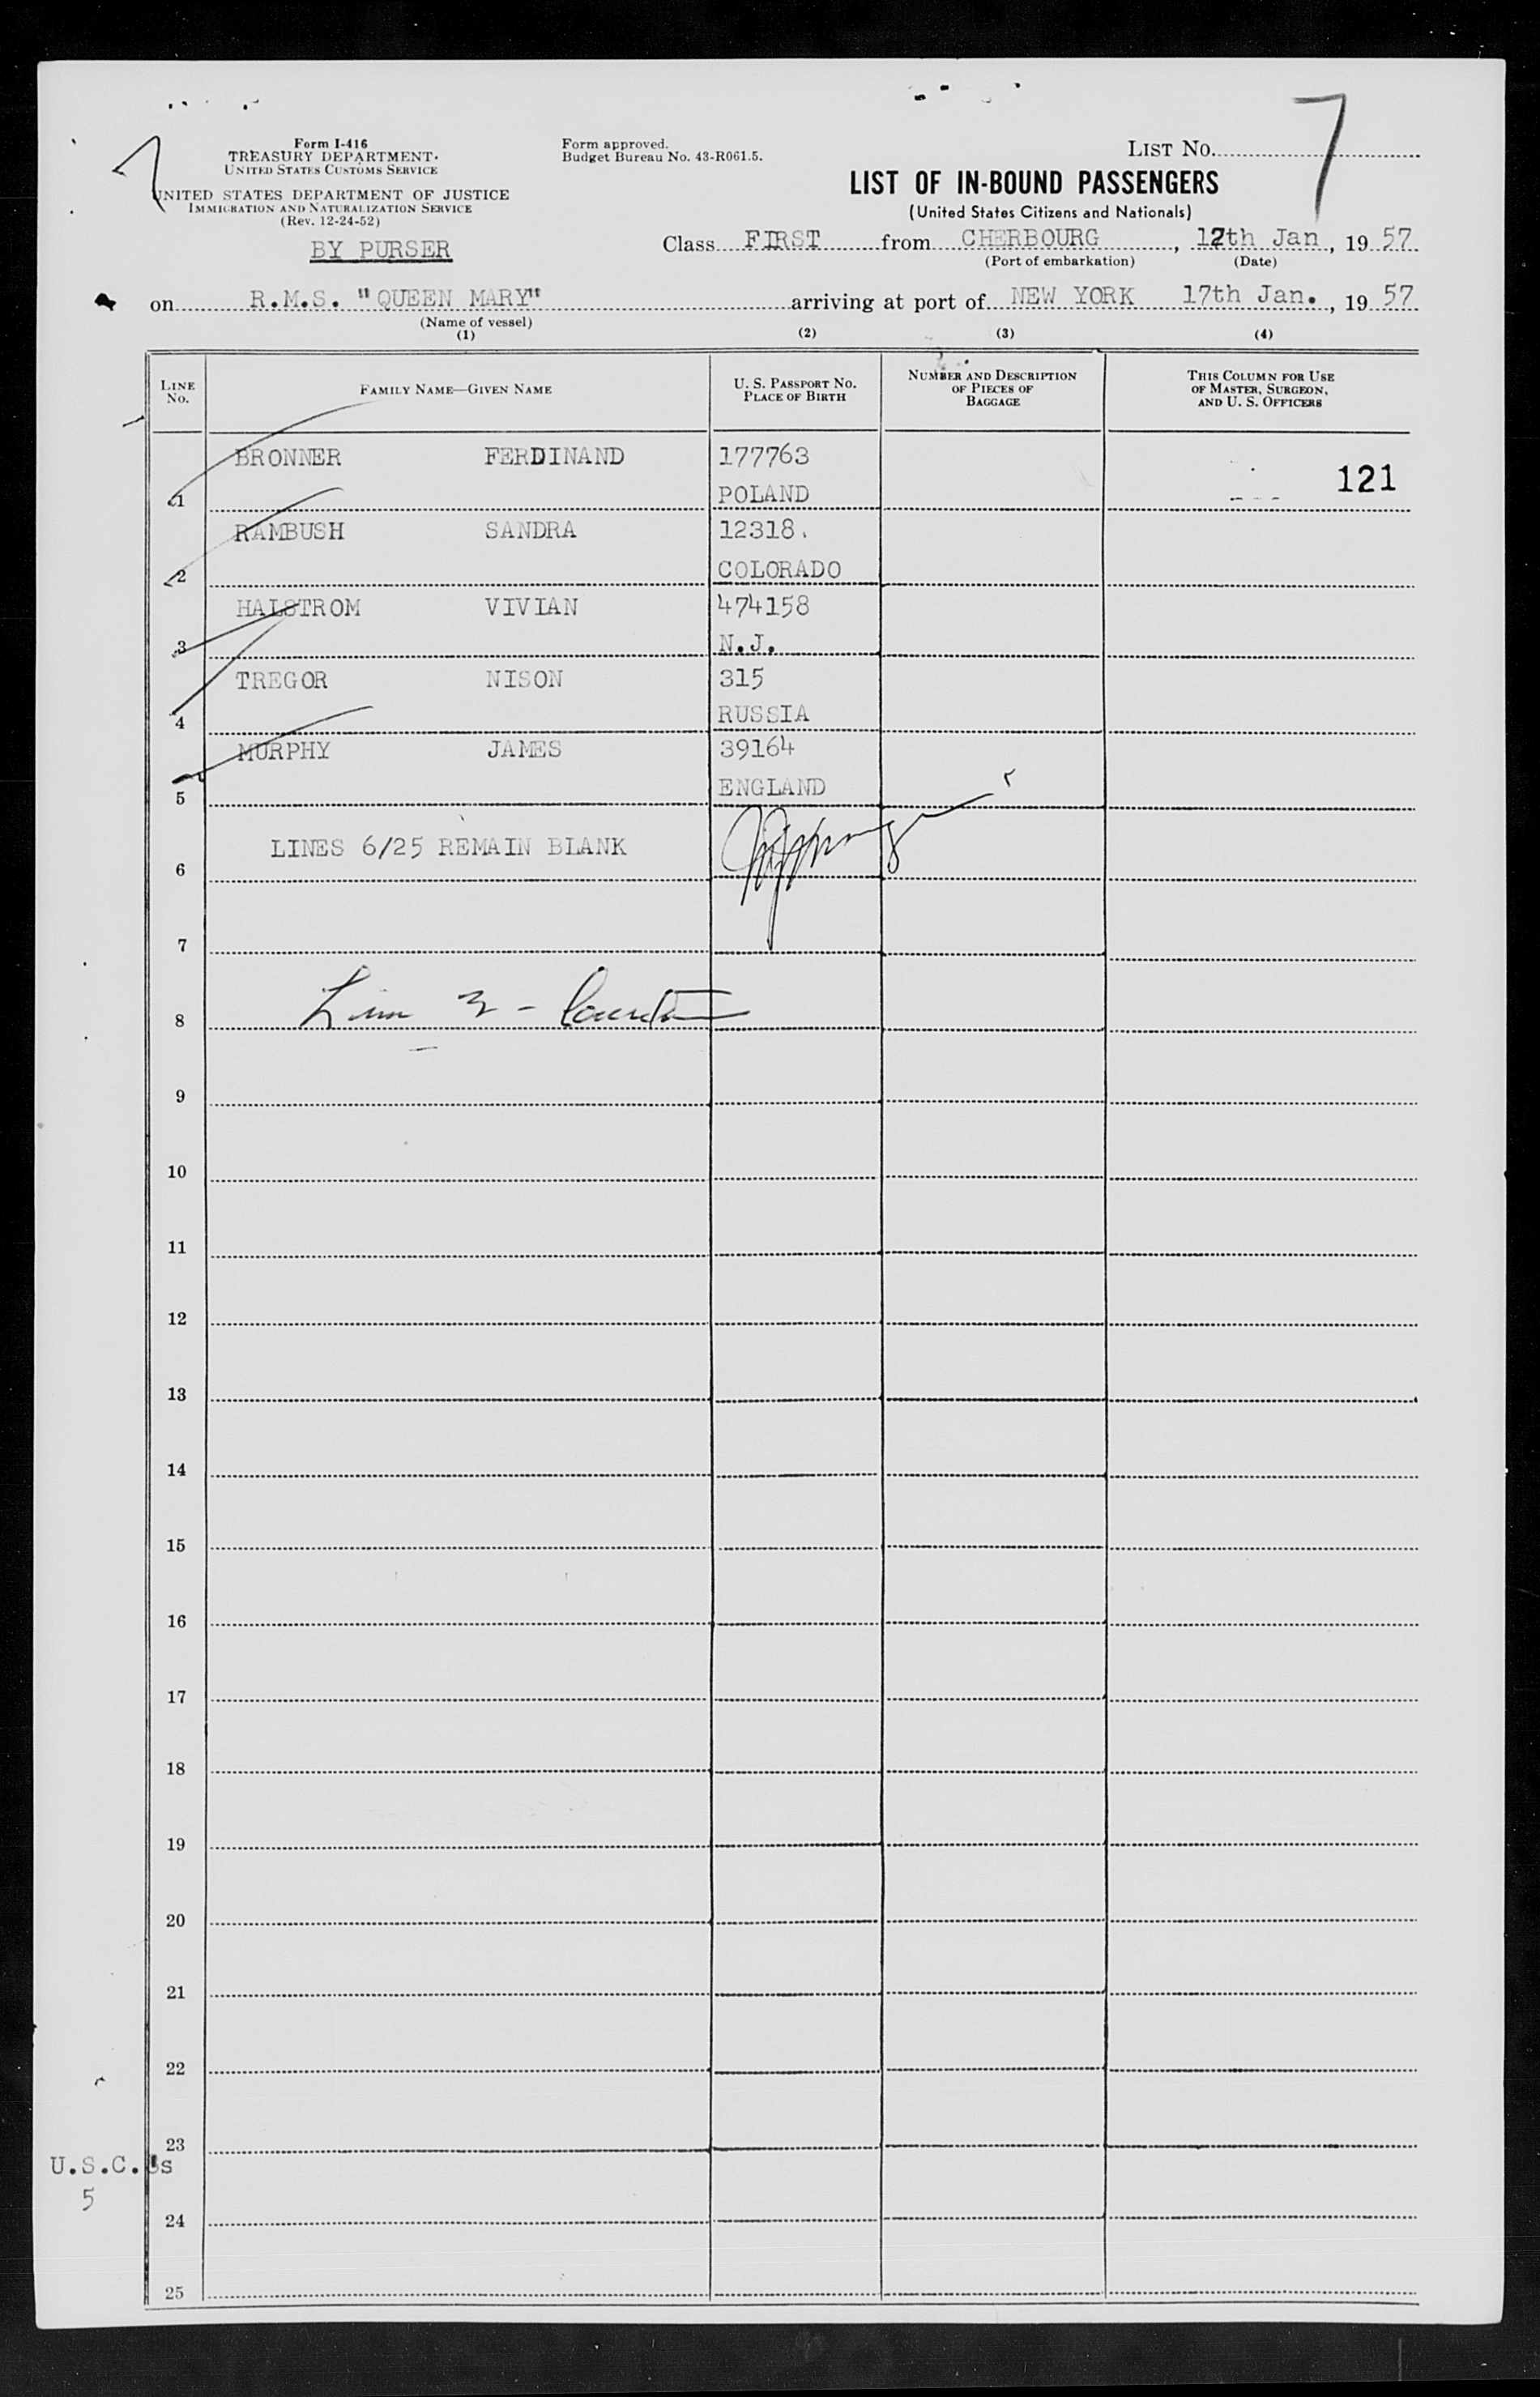 Form I-416
TREASURY DEPARTMENT
UNITED STATES CUSTOMS SERVICE
UNITED STATES DEPARTMENT OF JUSTICE
IMMIGRATION AND NATURALIZATION SERVICE
(Rev. 12-24-52)
BY PURSER
Form approved.
Budget Bureau No. 43-R061.5.
LIST NO. 7
LIST OF IN-BOUND PASSENGERS
(United States Citizens and Nationals)
Class FIRST from CHERBOURG, 12th Jan, 19 57
(Port of embarkation) (Date)
on R.M.S. "QUEEN MARY" arriving at port of NEW YORK 17th Jan., 19 57
(Name of vessel)
(1) (2) (3) (4)
LINE NO. FAMILY NAME—GIVEN NAME U. S. PASSPORT NO. PLACE OF BIRTH NUMBER AND DESCRIPTION OF PIECES OF BAGGAGE THIS COLUMN FOR USE OF MASTER, SURGEON, AND U. S. OFFICERS
BRONNER FERDINAND 177763
1 POLAND 121
RAMBUSH SANDRA 12318.
2 COLORADO
HALSTROM VIVIAN 474158
3 N.J.
TREGOR NISON 315
4 RUSSIA
MURPHY JAMES 39164
5 ENGLAND
LINES 6/25 REMAIN BLANK
6
7
8
9
10
11
12
13
14
15
16
17
18
19
20
21
22
23
U.S.C.'s
5
24
25